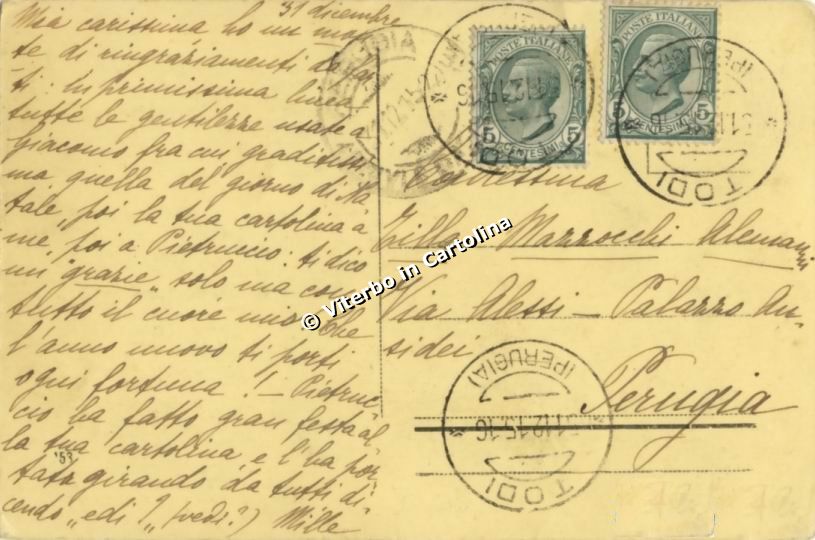 31 dicembre
Mia carissima ho un mon-
te di ringraziamenti da far
ti: In primissima linea
tutte le gentilezze usate a
Giacomo fra cui graditissi
ma quella del giorno di Na
tale, poi la tua cartolina a
me, poi a Pietruccio: ti dico
un "grazie" solo ma con
tutto il cuore mio. Che
l'anno nuovo ti porti
ogni fortuna! - Pietruc-
cio ha fatto gran festa al
la tua cartolina e l'ha por
tata girando da tutti di-
cendo „edi? „ (vedi?) Mille
'53
POSTE ITALIANE
5 5
CENTESIMI
POSTE ITALIANE
5 5
CENTESIMI
TODI
(PERUGIA)
31.12.15.16
TODI
(PERUGIA)
TODI
(PERUGIA)
31.12.15.16
Mazzocchi Alemanni
Via Alessi - Palazzo An-
sidei
Perugia
© Viterbo in Cartolina